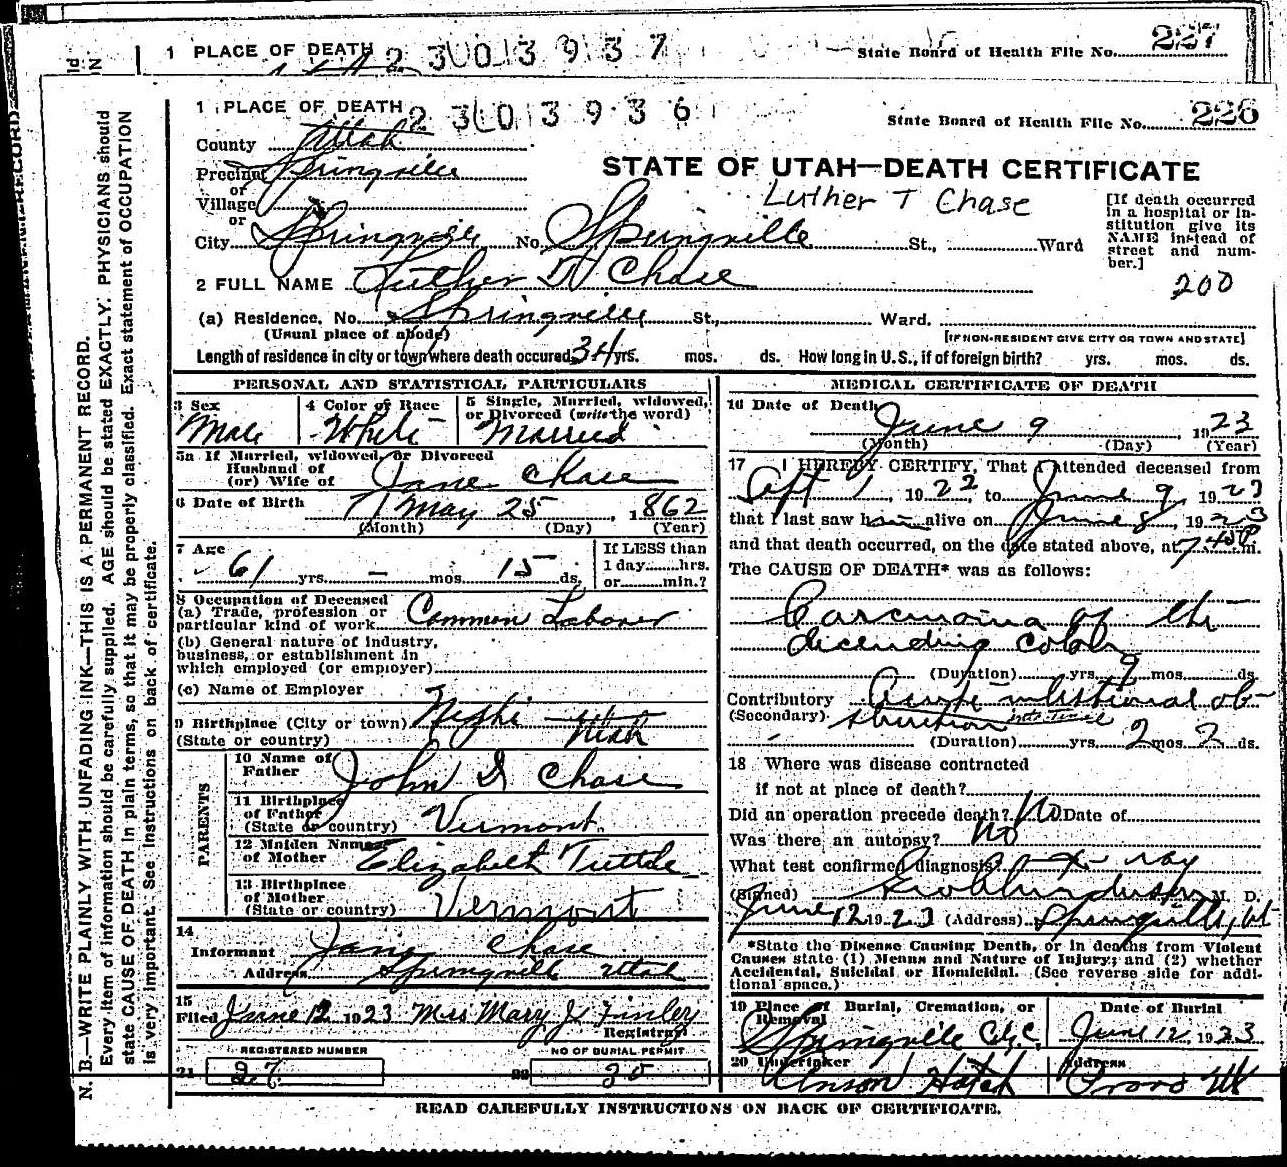 1 PLACE OF DEATH 2 3 0 3 9 3 7 State Board of Health File No. 227
1 PLACE OF DEATH 2 3 0 3 9 3 6 State Board of Health File No. 226
County Utah
STATE OF UTAH—DEATH CERTIFICATE
Precinct Springville
or
Village
or
Luther T Chase
[If death occurred in a hospital or institution give its NAME instead of street and number.]
City Springville No. Springville St., Ward
200
2 FULL NAME Luther T Chase
(a) Residence, No. Springville St., Ward.
(Usual place of abode) [IF NON-RESIDENT GIVE CITY OR TOWN AND STATE]
Length of residence in city or town where death occured 34 yrs. mos. ds. How long in U.S., if of foreign birth? yrs. mos. ds.
PERSONAL AND STATISTICAL PARTICULARS
3 Sex
Male
4 Color or Race
White
5 Single, Married, widowed, or Divorced (write the word)
Married
5a If Married, widowed, or Divorced
Husband of
(or) Wife of Jane Chase
6 Date of Birth May 25, 1862
(Month) (Day) (Year)
7 Age
61 yrs. — mos. 15 ds.
If LESS than
1 day hrs.
or min.?
8 Occupation of Deceased
(a) Trade, profession or
particular kind of work Common Laborer
(b) General nature of industry,
business, or establishment in
which employed (or employer)
(c) Name of Employer
9 Birthplace (City or town) Nephi Utah
(State or country)
PARENTS
10 Name of
Father John D Chase
11 Birthplace
of Father
(State or country) Vermont
12 Maiden Name
of Mother Elizabeth Tuttle
13 Birthplace
of Mother
(State or country) Vermont
14
Informant Jane Chase
Address Springville Utah
15
Filed June 12 1923 Mrs Mary J Finley
Registrar
REGISTERED NUMBER NO OF BURIAL PERMIT
21 27 22 20
MEDICAL CERTIFICATE OF DEATH
16 Date of Death
June 9, 1923
(Month) (Day) (Year)
17 I HEREBY CERTIFY, That I attended deceased from
Sept 1, 1922, to June 9, 1923
that I last saw him alive on June 8, 1923
and that death occurred, on the date stated above, at 7 40 P m.
The CAUSE OF DEATH* was as follows:
Carcinoma of the
decending colon
(Duration) yrs. 9 mos. ds.
Contributory Acute intestional ob-
(Secondary) struction
(Duration) yrs. 2 mos. 2 ds.
18 Where was disease contracted
if not at place of death?
Did an operation precede death? No Date of
Was there an autopsy? No
What test confirmed diagnosis? x ray
(Signed) M. D.
June 12 1923 (Address) Springville, Ut
*State the Disease Causing Death, or in deaths from Violent
Causes state (1) Means and Nature of Injury; and (2) whether
Accidental, Suicidal or Homicidal. (See reverse side for addi-
tional space.)
19 Place of Burial, Cremation, or
Removal
Springville City C
Date of Burial
June 12, 1923
20 Undertaker
Anson Hatch
Address
Provo Ut
READ CAREFULLY INSTRUCTIONS ON BACK OF CERTIFICATE.
N. B.—WRITE PLAINLY WITH UNFADING INK—THIS IS A PERMANENT RECORD.
Every item of information should be carefully supplied. AGE should be stated EXACTLY. PHYSICIANS should
state CAUSE OF DEATH in plain terms, so that it may be properly classified. Exact statement of OCCUPATION
is very important. See instructions on back of certificate.